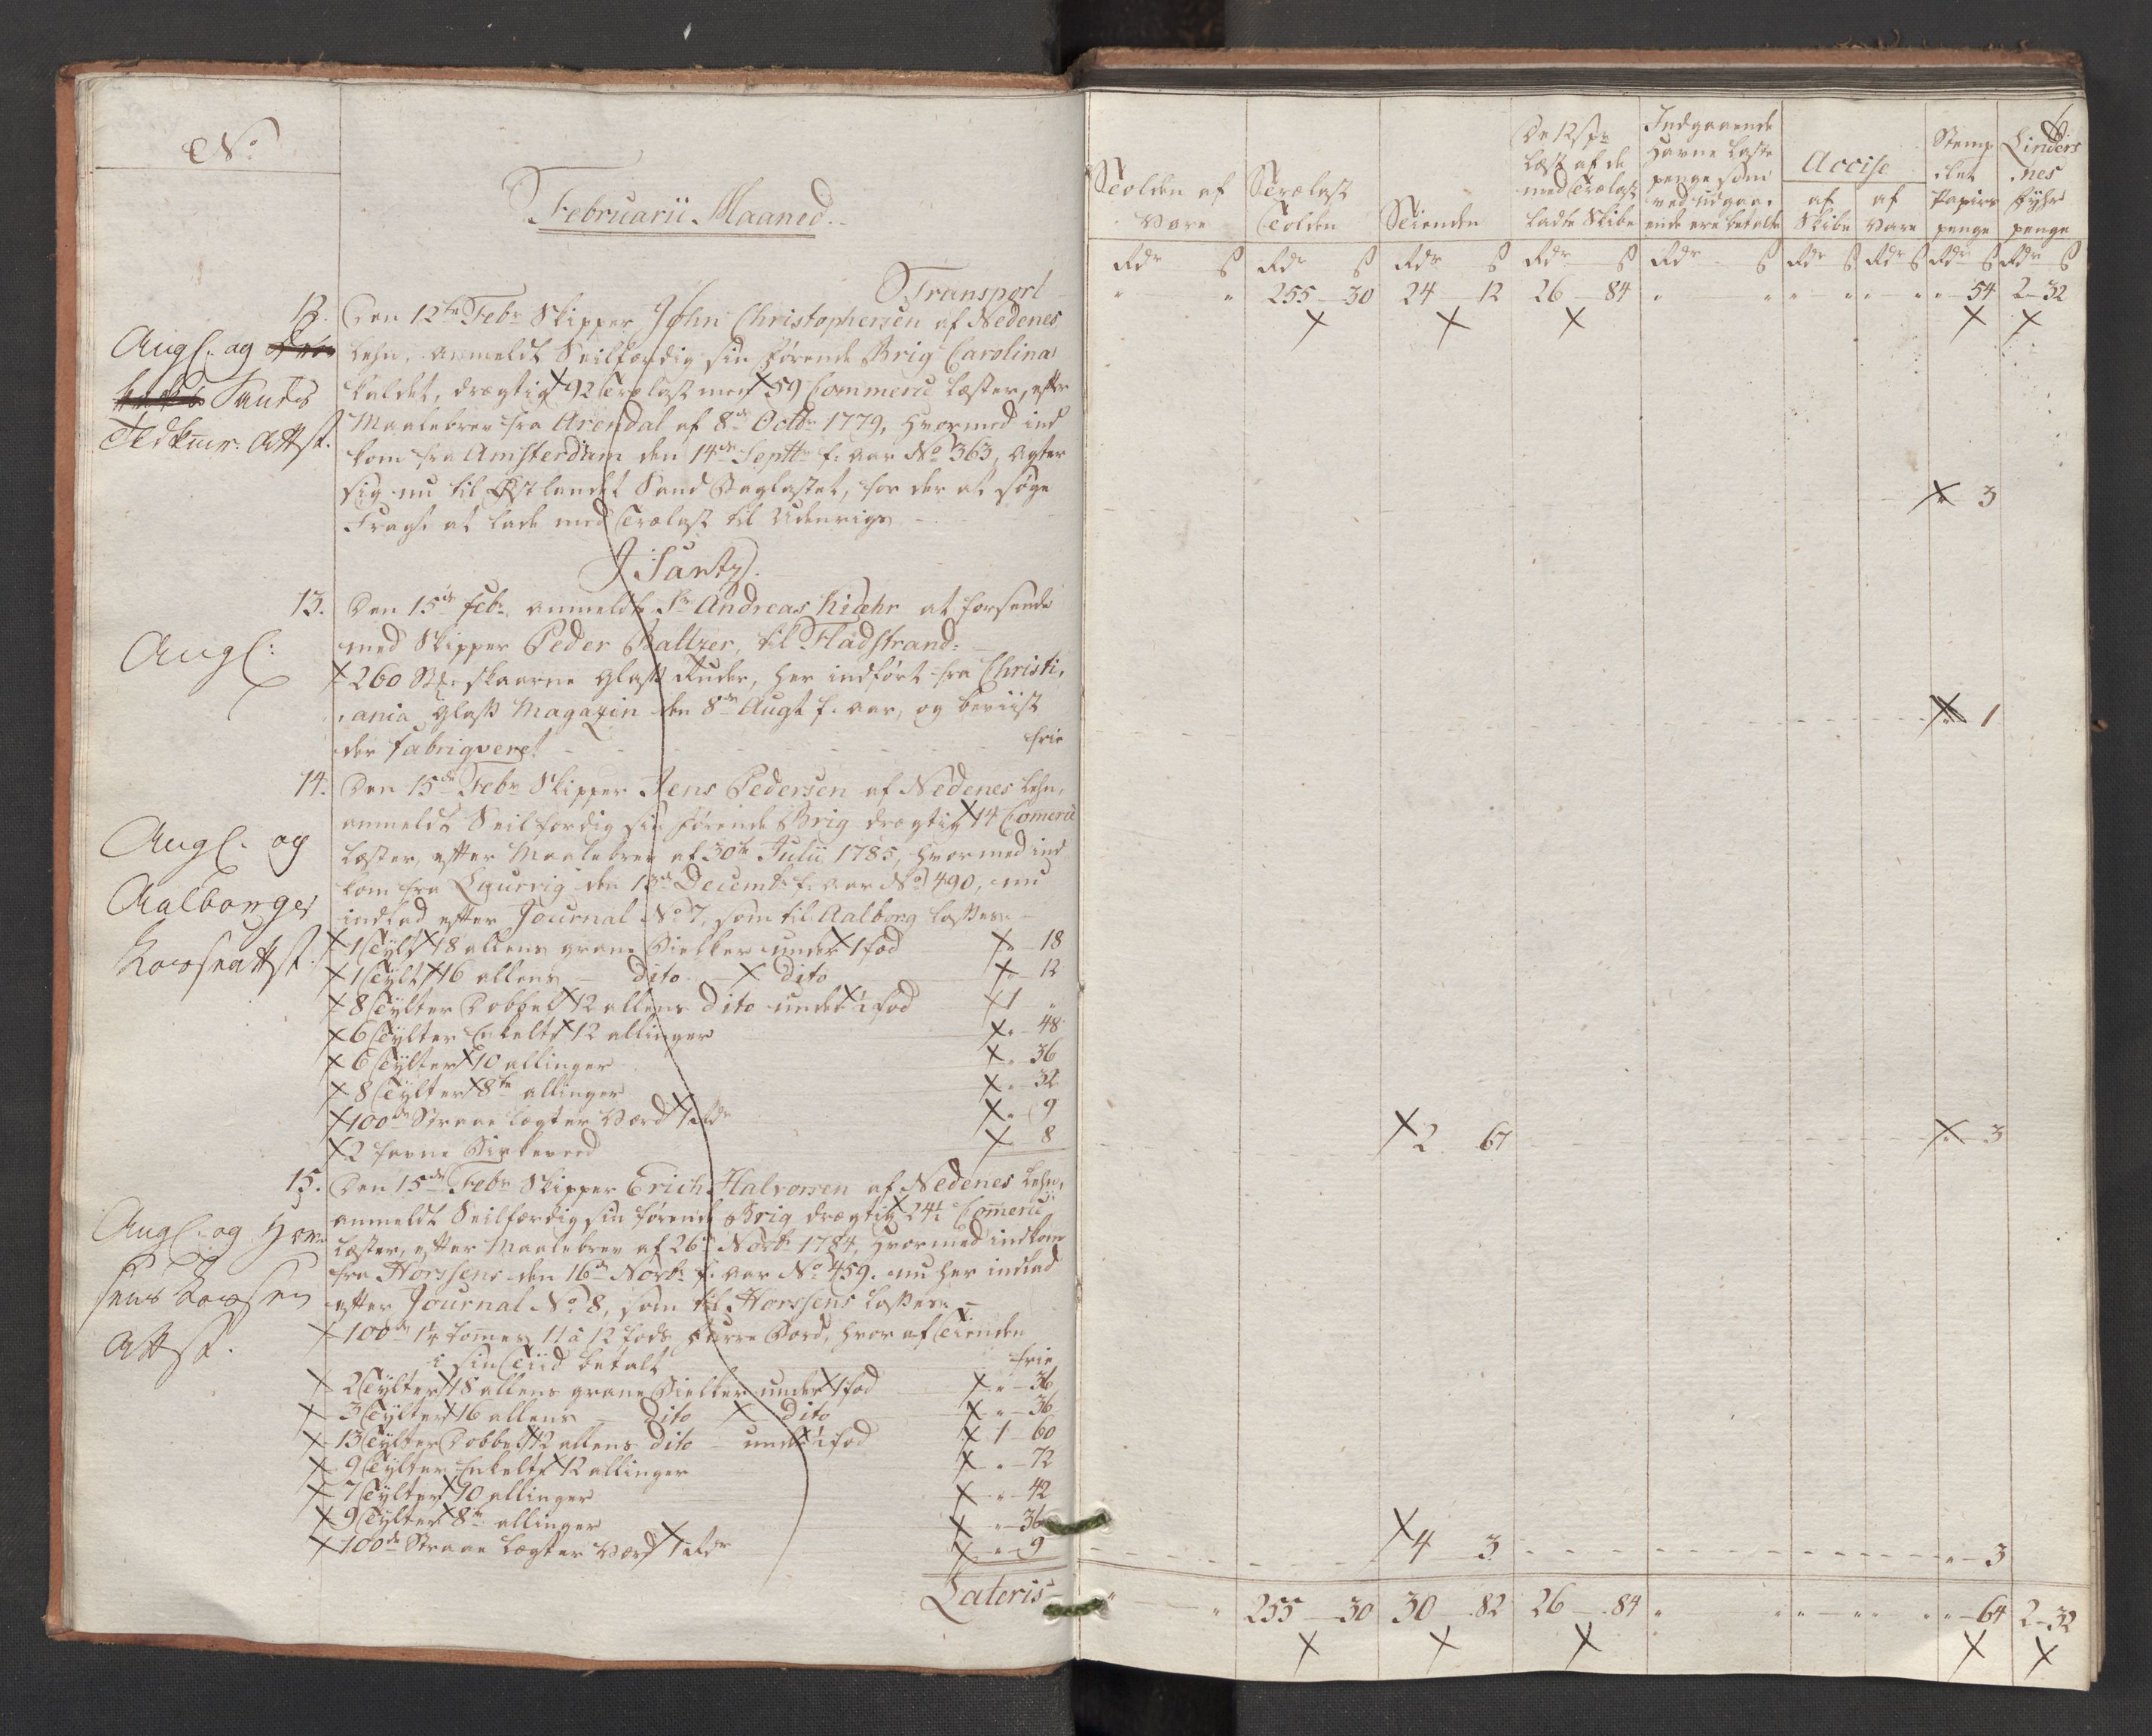 No
Februarii Maaned.
Transport
12. Den 12te Febr Skipper John Christophersen af Nedenes
Lehn, anmeldt Seilfærdig sin førende Brig Carolina
kaldet, drægtig 92 Trælast men 59 Commerce Læster, efter
Maalebrev fra Arendal af 8de Octbr 1779, hvormed ind
kom fra Amsterdam den 14de Septbr f. aar No 363, agter
sig nu til Østlandet Sand Baglastet, for der at søge
Fragt at lade med Trælast til Udenrigs
Angl. og
Attst.
J Santz.
13. Den 15de Febr anmeldte Sr Andreas Kiæhr at forsende
med Skipper Peder Baltzer, til Fladstrand.
260 Stk. skaarne Glass Ruder, her indført fra Christi,
ania Glass Magazin den 8de Augt f. aar, og beviist
der fabrigveret frie
Angl:
14. Den 15de Febr Skipper Jens Pedersen af Nedenes Lehn,
anmeldt Seilfærdig sin førende Brig drægtig 14 Commerce
Læster, efter Maalebrev af 30te Julii 1785, hvormed ind
kom fra Laurvig den 13de Decembr f. aar No 490, nu
indlad efter Journal No 7, som til Aalborg losses
Angl. og
Aalborger
attst.
1 Tylt 18 allens grane Bielker under 1 fod " 18
1 Tylt 16 allens dito dito " 12
8 Tylter Dobbelt 12 allens dito under 1 fod 1 "
6 Tylter Enkelt 12 allinger " 48
6 Tylter 10 allinger " 36
8 Tylter 8te allinger " 32
100de Straae Lægter Værd 1 rdr " 9
2 favne Birkeved 8
15. Den 15de Febr Skipper Erich Halvorsen af Nedenes Lehn,
anmeldt Seilfærdig sin førende Brig drægtig 24½ Commerce
Læster, efter Maalebrev af 26de Novbr 1784, hvormed indkom
fra Horssens den 16de Novbr f. aar No 459. nu her indlad
efter Journal No 8, som til Horssens losses
Angl. og Hor
sens
Attst.
100de 1¼ Tommes 11 a 12 fods furre Bord, hvor af Tienden
i sin Tiid betalt frie
2 Tylter 18 allens grane Bielker under 1 fod " 36
3 Tylter 16 allens dito dito " 36
13 Tylter Dobbelt 12 allens dito under 1 fod 1 60
9 Tylter Enkelt 12 allinger " 72
7 Tylter 10 allinger " 42
9 Tylter 8te allinger " 36
100de Straae Lægter Værd 1 rdr " 9
Lateris
Tolden af Vare
Trælast Tolden
Tienden
De 12 s pr Læst af de med Trælast ladte Skibe
Indgaaende Havne Laste penge som ved udgaaende ere betalte
Accise
af Skibe
af Vare
Stemplet Papirs penge
Linders Nes fyhr penge
Rdr ß Rdr ß Rdr ß Rdr ß Rdr ß Rdr ß Rdr ß Rdr ß Rdr ß
" " 255 30 24 12 26 84 " " " " " " " 54 2 32
" 3
" 1
2 67 " 3
4 3 " 3
" " 255 30 30 82 26 84 " " " " " " " 64 2 32